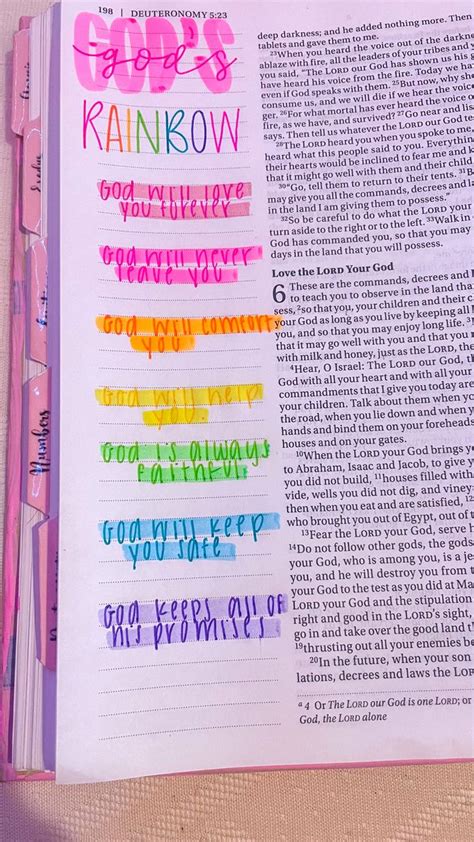 198 | DEUTERONOMY 5:23
GOD'S
god's
RAINBOW
God will love
you forever
God will never
leave you
God will comfort
you
God will help
you
God is always
faithful
God will keep
you safe
God keeps all of
his promises
deep darkness; and he added nothing more. Then
tablets and gave them to me.
23When you heard the voice out of the darkness
ablaze with fire, all the leaders of your tribes and
you said, "The LORD our God has shown us his g
have heard his voice from the fire. Today we ha
even if God speaks with them. 25But now, why sh
consume us, and we will die if we hear the voice
ger. 26For what mortal has ever heard the voice of
fire, as we have, and survived? 27Go near and list
says. Then tell us whatever the LORD our God te
28The LORD heard you when you spoke to me
heard what this people said to you. Everything
their hearts would be inclined to fear me and k
that it might go well with them and their child
30"Go, tell them to return to their tents. 31B
may give you all the commands, decrees and l
in the land I am giving them to possess."
32So be careful to do what the LORD your
turn aside to the right or to the left. 33Walk in
God has commanded you, so that you may
days in the land that you will possess.
Love the LORD Your God
6 These are the commands, decrees and
to teach you to observe in the land tha
sess, 2so that you, your children and their c
your God as long as you live by keeping all
you, and so that you may enjoy long life. 3
that it may go well with you and that you
with milk and honey, just as the LORD, the
4Hear, O Israel: The LORD our God, th
God with all your heart and with all your
commandments that I give you today are
your children. Talk about them when yo
the road, when you lie down and when y
hands and bind them on your foreheads
houses and on your gates.
10When the LORD your God brings y
to Abraham, Isaac and Jacob, to give y
you did not build, 11houses filled with
vide, wells you did not dig, and viney
then when you eat and are satisfied, 12
who brought you out of Egypt, out of t
13Fear the LORD your God, serve h
14Do not follow other gods, the gods
your God, who is among you, is a je
you, and he will destroy you from t
your God to the test as you did at Ma
LORD your God and the stipulation
right and good in the LORD's sight,
go in and take over the good land th
19thrusting out all your enemies be
20In the future, when your son
lations, decrees and laws the LOR
a 4 Or The LORD our God is one LORD; or
God, the LORD alone
Exodus
Numbers